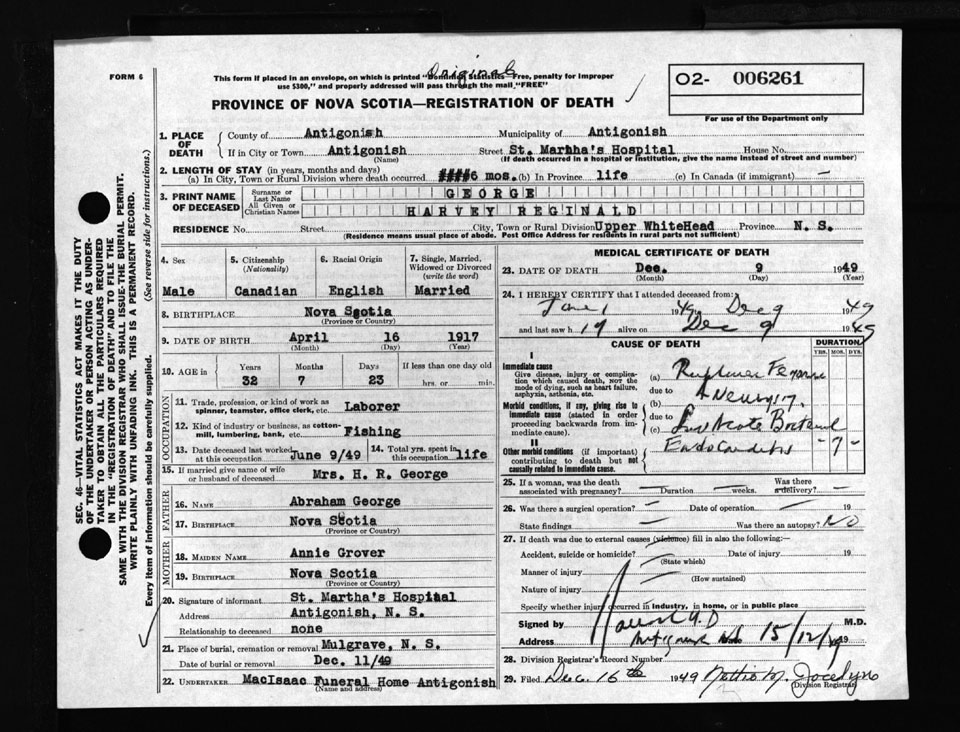 Original
FORM 6
This form if placed in an envelope, on which is printed "Dominion Statistics—Free, penalty for improper
use $300," and properly addressed will pass through the mail "FREE"
O2- 006261
For use of the Department only
PROVINCE OF NOVA SCOTIA—REGISTRATION OF DEATH
SEC. 46—VITAL STATISTICS ACT MAKES IT THE DUTY
OF THE UNDERTAKER OR PERSON ACTING AS UNDER-
TAKER TO OBTAIN ALL THE PARTICULARS REQUIRED
IN THE "REGISTRATION OF DEATH" AND TO FILE THE
SAME WITH THE DIVISION REGISTRAR WHO SHALL ISSUE THE BURIAL PERMIT.
WRITE PLAINLY WITH UNFADING INK. THIS IS A PERMANENT RECORD.
Every item of information should be carefully supplied. (See reverse side for instructions.)
1. PLACE OF DEATH
County of Antigonish Municipality of Antigonish
If in City or Town Antigonish Street St. Martha's Hospital House No.
(Name) (If death occurred in a hospital or institution, give the name instead of street and number)
2. LENGTH OF STAY (in years, months and days)
(a) In City, Town or Rural Division where death occurred ####6 mos. (b) In Province life (c) In Canada (if immigrant) —
3. PRINT NAME OF DECEASED
Surname or Last Name GEORGE
All Given or Christian Names HARVEY REGINALD
RESIDENCE No. Street City, Town or Rural Division Upper WhiteHead Province N. S.
(Residence means usual place of abode. Post Office Address for residents in rural parts not sufficient)
4. Sex 5. Citizenship (Nationality) 6. Racial Origin 7. Single, Married, Widowed or Divorced (write the word)
Male Canadian English Married
8. BIRTHPLACE Nova Scotia
(Province or Country)
9. DATE OF BIRTH April 16 1917
(Month) (Day) (Year)
10. AGE IN Years Months Days If less than one day old
32 7 23 hrs. or min.
OCCUPATION
11. Trade, profession, or kind of work as
spinner, teamster, office clerk, etc. Laborer
12. Kind of industry or business, as cotton-
mill, lumbering, bank, etc. Fishing
13. Date deceased last worked at this occupation June 9/49 14. Total yrs. spent in this occupation life
15. If married give name of wife
or husband of deceased Mrs. H. R. George
FATHER
16. NAME Abraham George
17. BIRTHPLACE Nova Scotia
(Province or Country)
MOTHER
18. MAIDEN NAME Annie Grover
19. BIRTHPLACE Nova Scotia
(Province or Country)
20. Signature of informant St. Martha's Hospital
Address Antigonish, N. S.
Relationship to deceased none
21. Place of burial, cremation or removal Mulgrave, N. S.
Date of burial or removal Dec. 11/49
22. UNDERTAKER MacIsaac Funeral Home Antigonish
(Name and address)
MEDICAL CERTIFICATE OF DEATH
23. DATE OF DEATH Dec. 9 1949
(Month) (Day) (Year)
24. I HEREBY CERTIFY that I attended deceased from:
1949 Dec 9 1949
and last saw h alive on Dec 9 1949
CAUSE OF DEATH DURATION
YRS. MOS. DYS.
I
Immediate cause
Give disease, injury or complica-
tion which caused death, NOT the
mode of dying, such as heart failure,
asphyxia, asthenia, etc.
(a)
due to
Morbid conditions, if any, giving rise to
immediate cause (stated in order
proceeding backwards from im-
mediate cause).
(b)
due to
(c)
II
Other morbid conditions (if important)
contributing to death but not
causally related to immediate cause.
- 7 -
25. If a woman, was the death Was there
associated with pregnancy? — Duration — weeks. a delivery? —
26. Was there a surgical operation? — Date of operation — 19
State findings — Was there an autopsy? No
27. If death was due to external causes (violence) fill in also the following:—
Accident, suicide or homicide? Date of injury 19
(State which)
Manner of injury
(How sustained)
Nature of injury
Specify whether injury occurred in industry, in home, or in public place
Signed by M.D.
Address 15/12/49 19
28. Division Registrar's Record Number
29. Filed Dec. 16th 1949 Nettie M. Jocelyn
(Division Registrar)